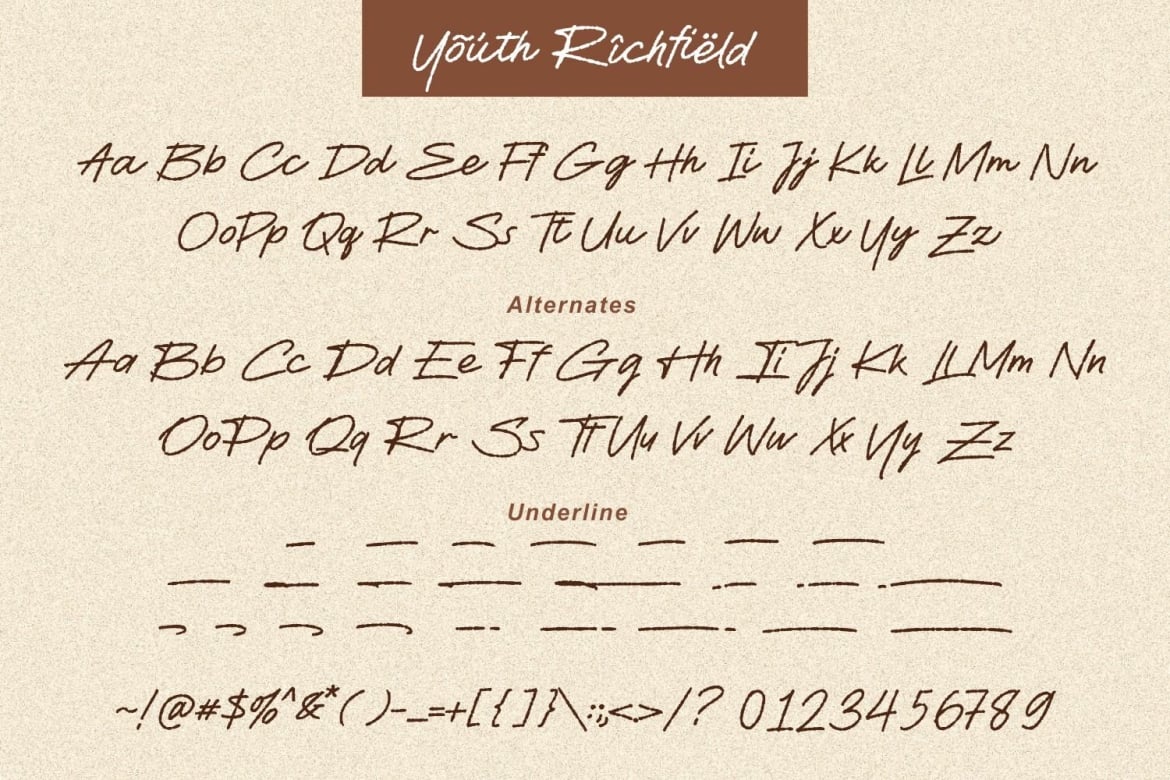 Yõúth Rîchfiëld
Aa Bb Cc Dd Ee Ff Gg Hh Ii Jj Kk Ll Mm Nn
Oo Pp Qq Rr Ss Tt Uu Vv Ww Xx Yy Zz
Alternates
Aa Bb Cc Dd Ee Ff Gg Hh Ii Jj Kk Ll Mm Nn
Oo Pp Qq Rr Ss Tt Uu Vv Ww Xx Yy Zz
Underline
~!@#$%^&*()-_=+[{]}\:;,<.>/? 0123456789